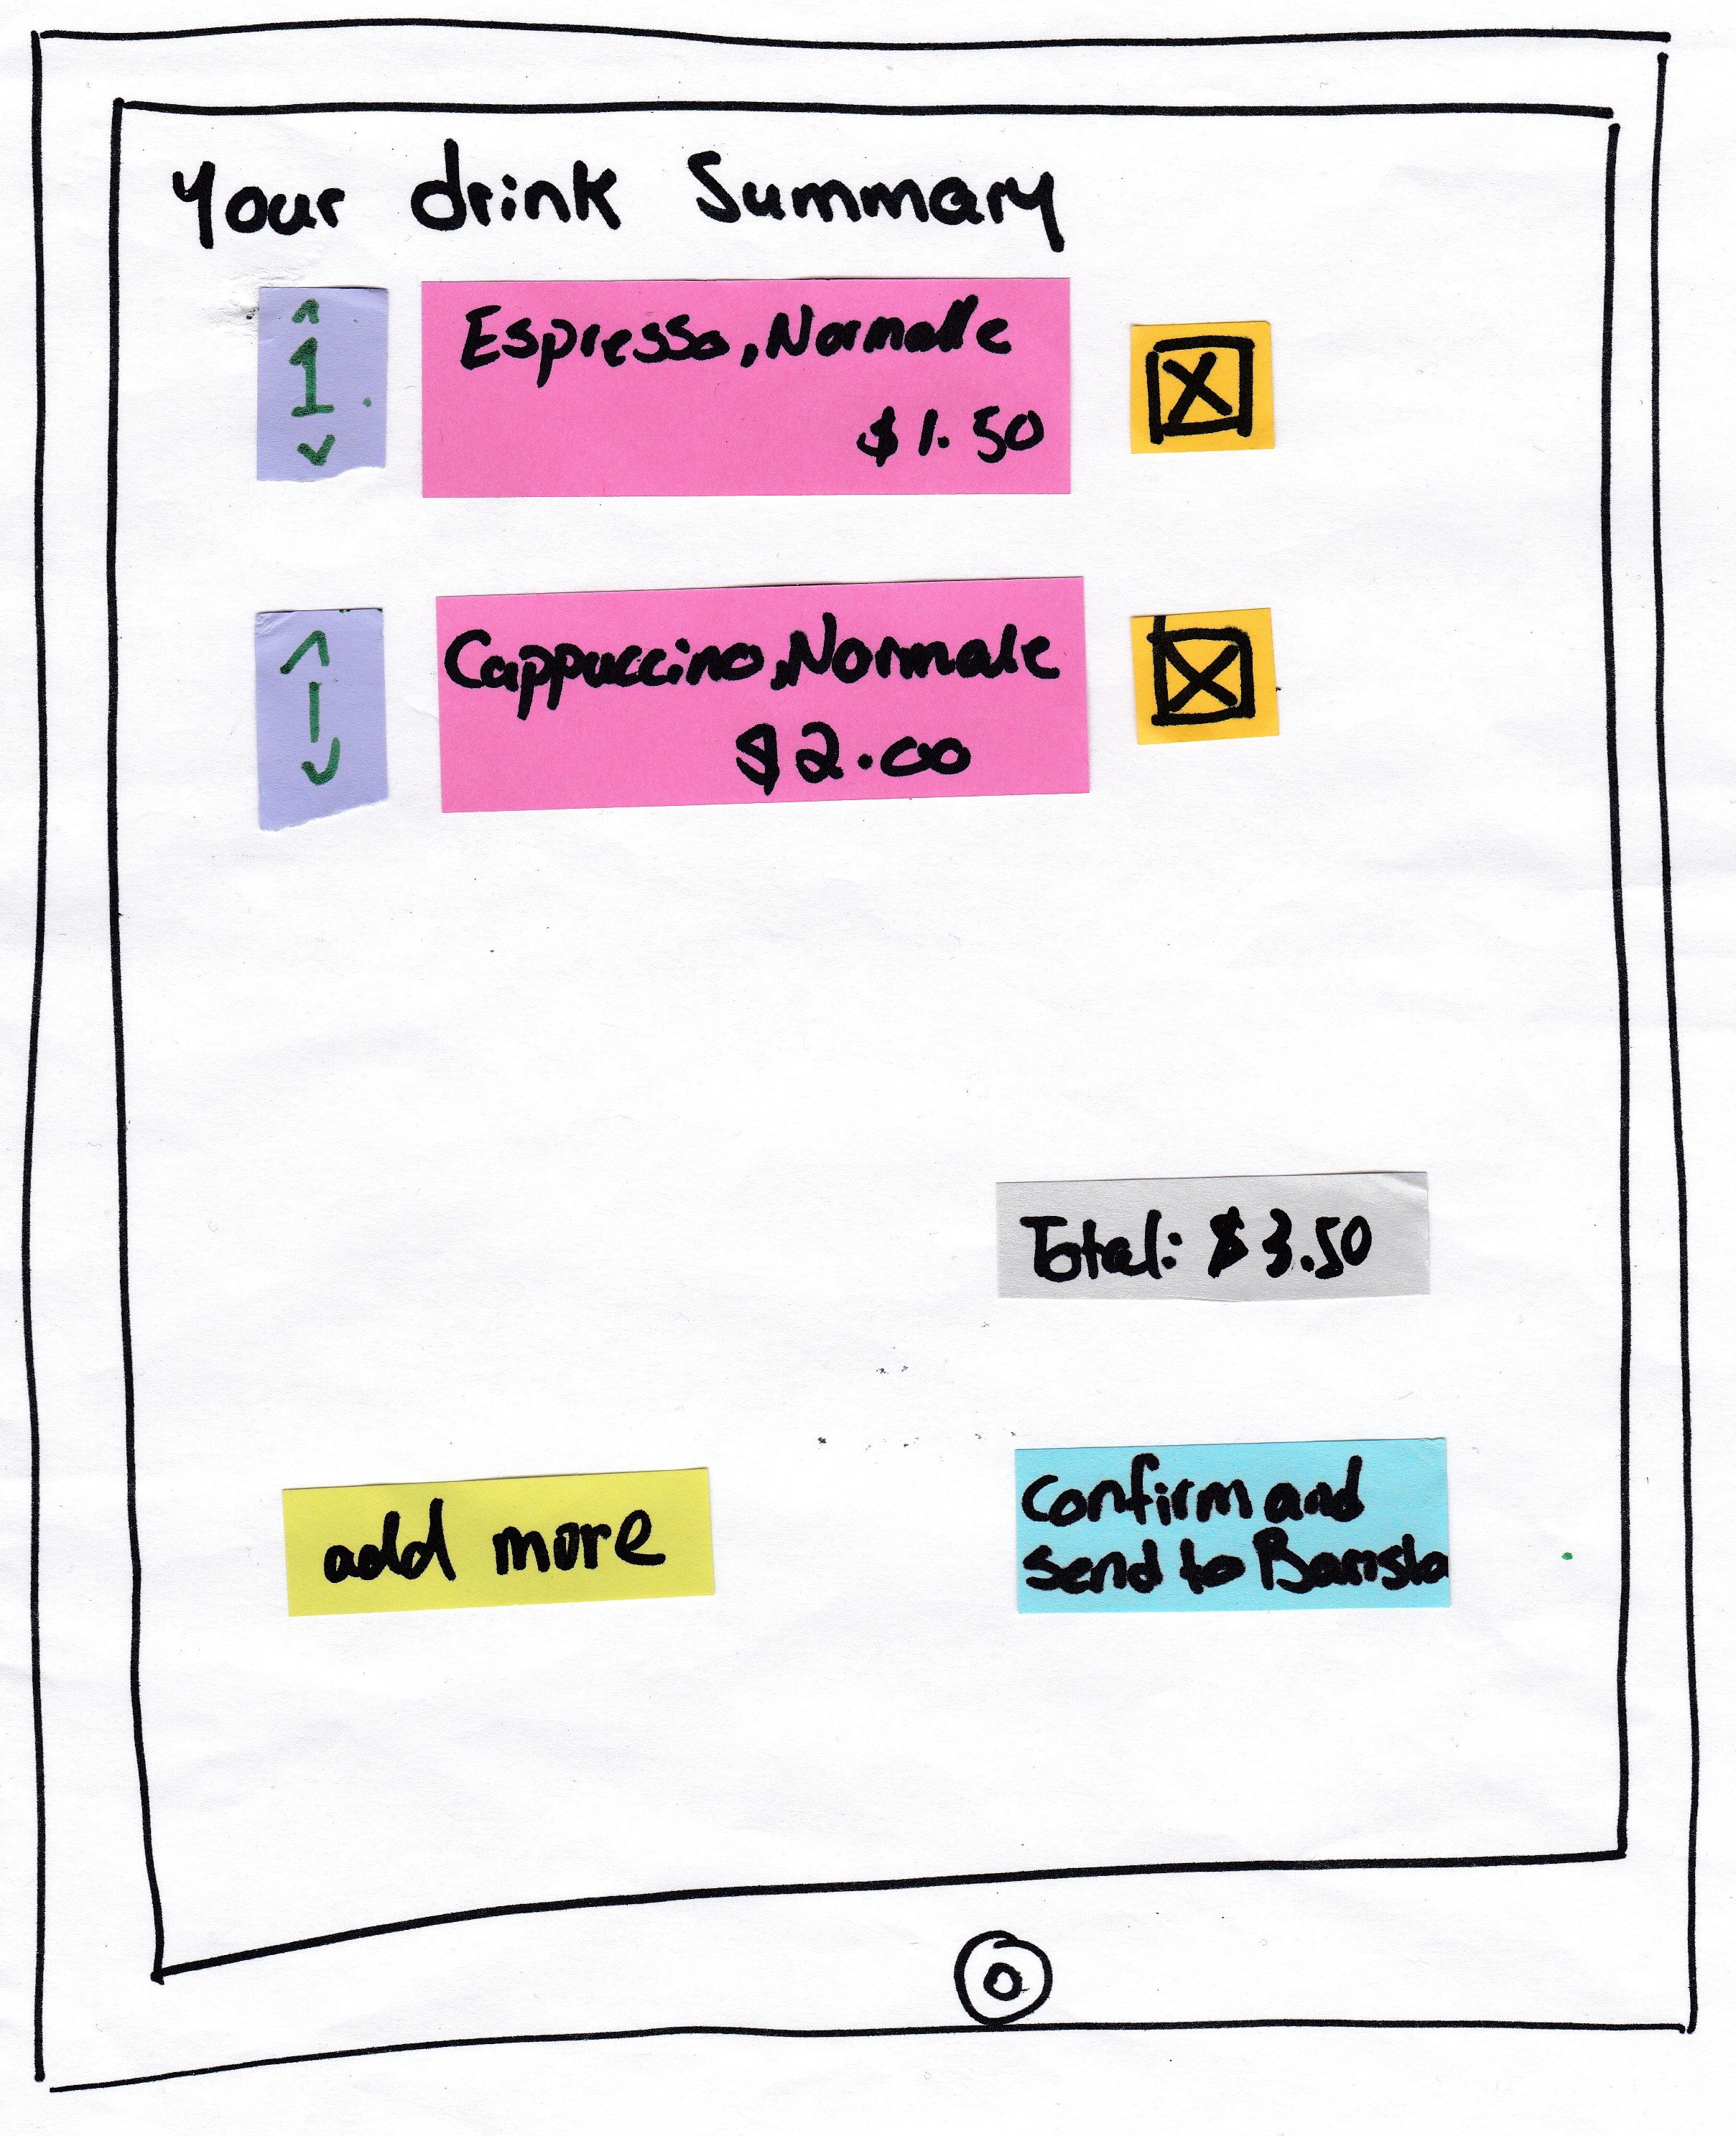 Your drink Summary
1
Espresso, Normale
$1.50
X
1
Cappuccino, Normale
$2.00
X
Total: $3.50
add more
Confirm and
send to Barista